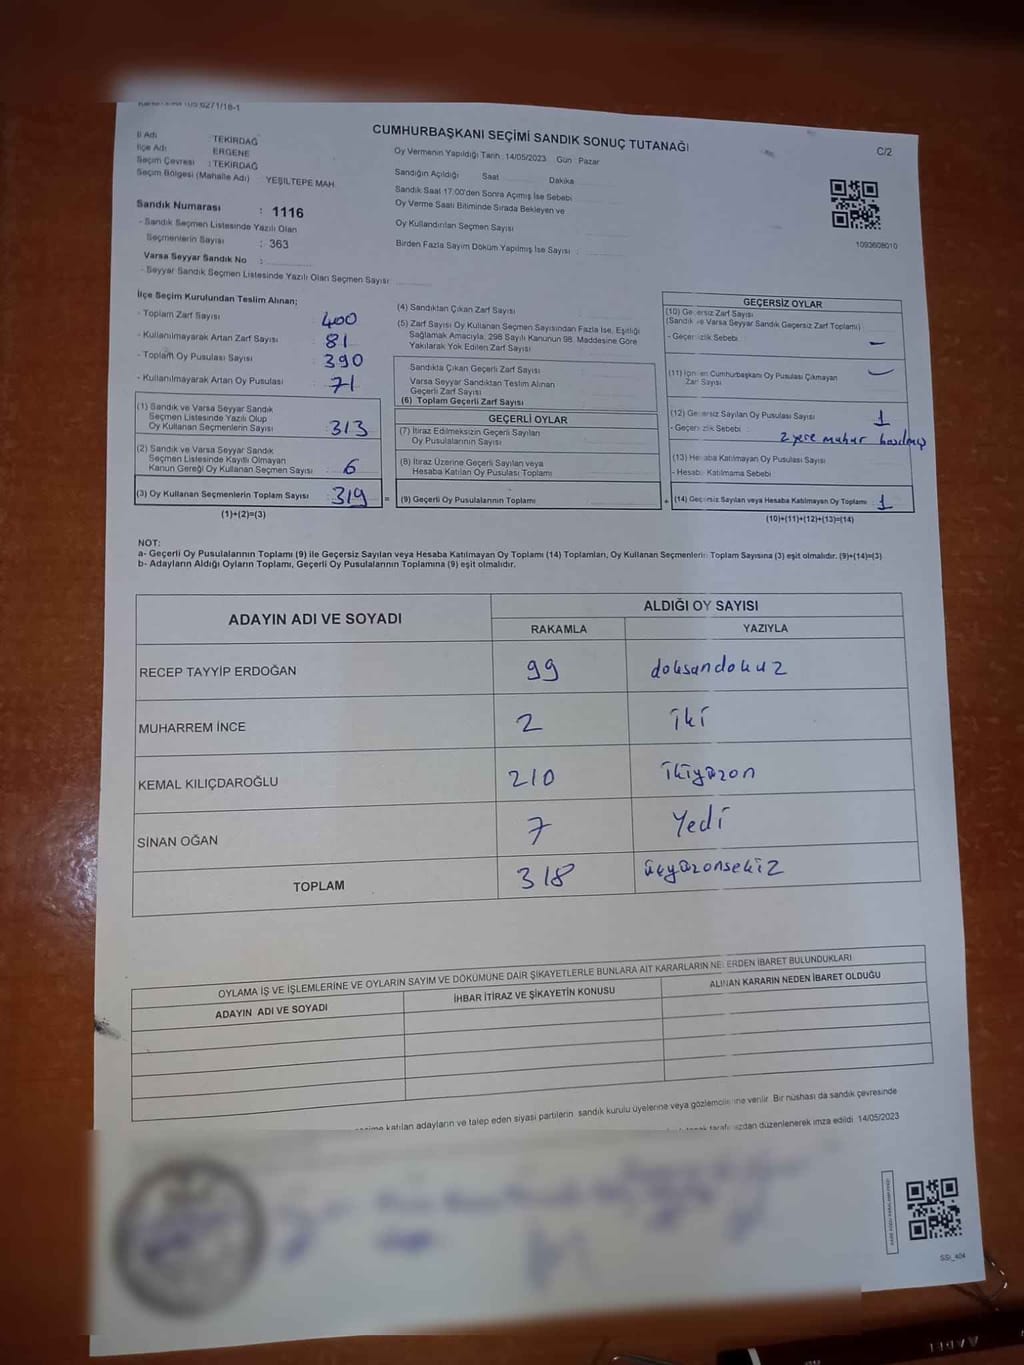 CUMHURBAŞKANI SEÇİMİ SANDIK SONUÇ TUTANAĞI
C/2
İl Adı : TEKİRDAĞ
İlçe Adı : ERGENE
Seçim Çevresi : TEKİRDAĞ
Seçim Bölgesi (Mahalle Adı) : YEŞİLTEPE MAH.
Sandık Numarası : 1116
- Sandık Seçmen Listesinde Yazılı Olan
Seçmenlerin Sayısı : 363
Varsa Seyyar Sandık No :
- Seyyar Sandık Seçmen Listesinde Yazılı Olan Seçmen Sayısı :
Oy Vermenin Yapıldığı Tarih : 14/05/2023 Gün : Pazar
Sandığın Açıldığı Saat Dakika
Sandık Saat 17:00'den Sonra Açılmış İse Sebebi
Oy Verme Saati Bitiminde Sırada Bekleyen ve
Oy Kullandırılan Seçmen Sayısı
Birden Fazla Sayım Döküm Yapılmış İse Sayısı :
1093608010
İlçe Seçim Kurulundan Teslim Alınan;
- Toplam Zarf Sayısı : 400
- Kullanılmayarak Artan Zarf Sayısı : 81
- Toplam Oy Pusulası Sayısı : 390
- Kullanılmayarak Artan Oy Pusulası : 71
(1) Sandık ve Varsa Seyyar Sandık
Seçmen Listesinde Yazılı Olup
Oy Kullanan Seçmenlerin Sayısı : 313
(2) Sandık ve Varsa Seyyar Sandık
Seçmen Listesinde Kayıtlı Olmayan
Kanun Gereği Oy Kullanan Seçmen Sayısı : 6
(3) Oy Kullanan Seçmenlerin Toplam Sayısı : 319
(1)+(2)=(3)
=
(4) Sandıktan Çıkan Zarf Sayısı :
(5) Zarf Sayısı Oy Kullanan Seçmen Sayısından Fazla İse, Eşitliği
Sağlamak Amacıyla, 298 Sayılı Kanunun 98. Maddesine Göre
Yakılarak Yok Edilen Zarf Sayısı
Sandıkta Çıkan Geçerli Zarf Sayısı
Varsa Seyyar Sandıktan Teslim Alınan
Geçerli Zarf Sayısı
(6) Toplam Geçerli Zarf Sayısı
GEÇERLİ OYLAR
(7) İtiraz Edilmeksizin Geçerli Sayılan
Oy Pusulalarının Sayısı
(8) İtiraz Üzerine Geçerli Sayılan veya
Hesaba Katılan Oy Pusulası Toplamı
(9) Geçerli Oy Pusulalarının Toplamı
+
GEÇERSİZ OYLAR
(10) Geçersiz Zarf Sayısı
(Sandık ve Varsa Seyyar Sandık Geçersiz Zarf Toplamı)
- Geçersizlik Sebebi : -
(11) İçinden Cumhurbaşkanı Oy Pusulası Çıkmayan
Zarf Sayısı -
(12) Geçersiz Sayılan Oy Pusulası Sayısı : 1
- Geçersizlik Sebebi : 2 yere mühür basılmış
(13) Hesaba Katılmayan Oy Pusulası Sayısı
- Hesaba Katılmama Sebebi
(14) Geçersiz Sayılan veya Hesaba Katılmayan Oy Toplamı : 1
(10)+(11)+(12)+(13)=(14)
NOT:
a- Geçerli Oy Pusulalarının Toplamı (9) ile Geçersiz Sayılan veya Hesaba Katılmayan Oy Toplamı (14) Toplamları, Oy Kullanan Seçmenlerin Toplam Sayısına (3) eşit olmalıdır. (9)+(14)=(3)
b- Adayların Aldığı Oyların Toplamı, Geçerli Oy Pusulalarının Toplamına (9) eşit olmalıdır.
ADAYIN ADI VE SOYADI ALDIĞI OY SAYISI
RAKAMLA YAZIYLA
RECEP TAYYİP ERDOĞAN 99 doksandokuz
MUHARREM İNCE 2 iki
KEMAL KILIÇDAROĞLU 210 ikiyüzon
SİNAN OĞAN 7 Yedi
TOPLAM 318 üçyüzonsekiz
OYLAMA İŞ VE İŞLEMLERİNE VE OYLARIN SAYIM VE DÖKÜMÜNE DAİR ŞİKAYETLERLE BUNLARA AİT KARARLARIN NELERDEN İBARET BULUNDUKLARI
ADAYIN ADI VE SOYADI İHBAR İTİRAZ VE ŞİKAYETİN KONUSU ALINAN KARARIN NEDEN İBARET OLDUĞU
katılan adayların ve talep eden siyasi partilerin sandık kurulu üyelerine veya gözlemcilerine verilir. Bir nüshası da sandık çevresinde
düzenlenerek imza edildi. 14/05/2023
SSİ_404